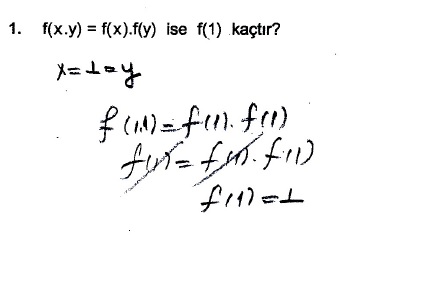 1. f(x.y) = f(x).f(y) ise f(1) kaçtır?
x=1=y
f(1.1)=f(1).f(1)
f(1)=f(1).f(1)
f(1)=1